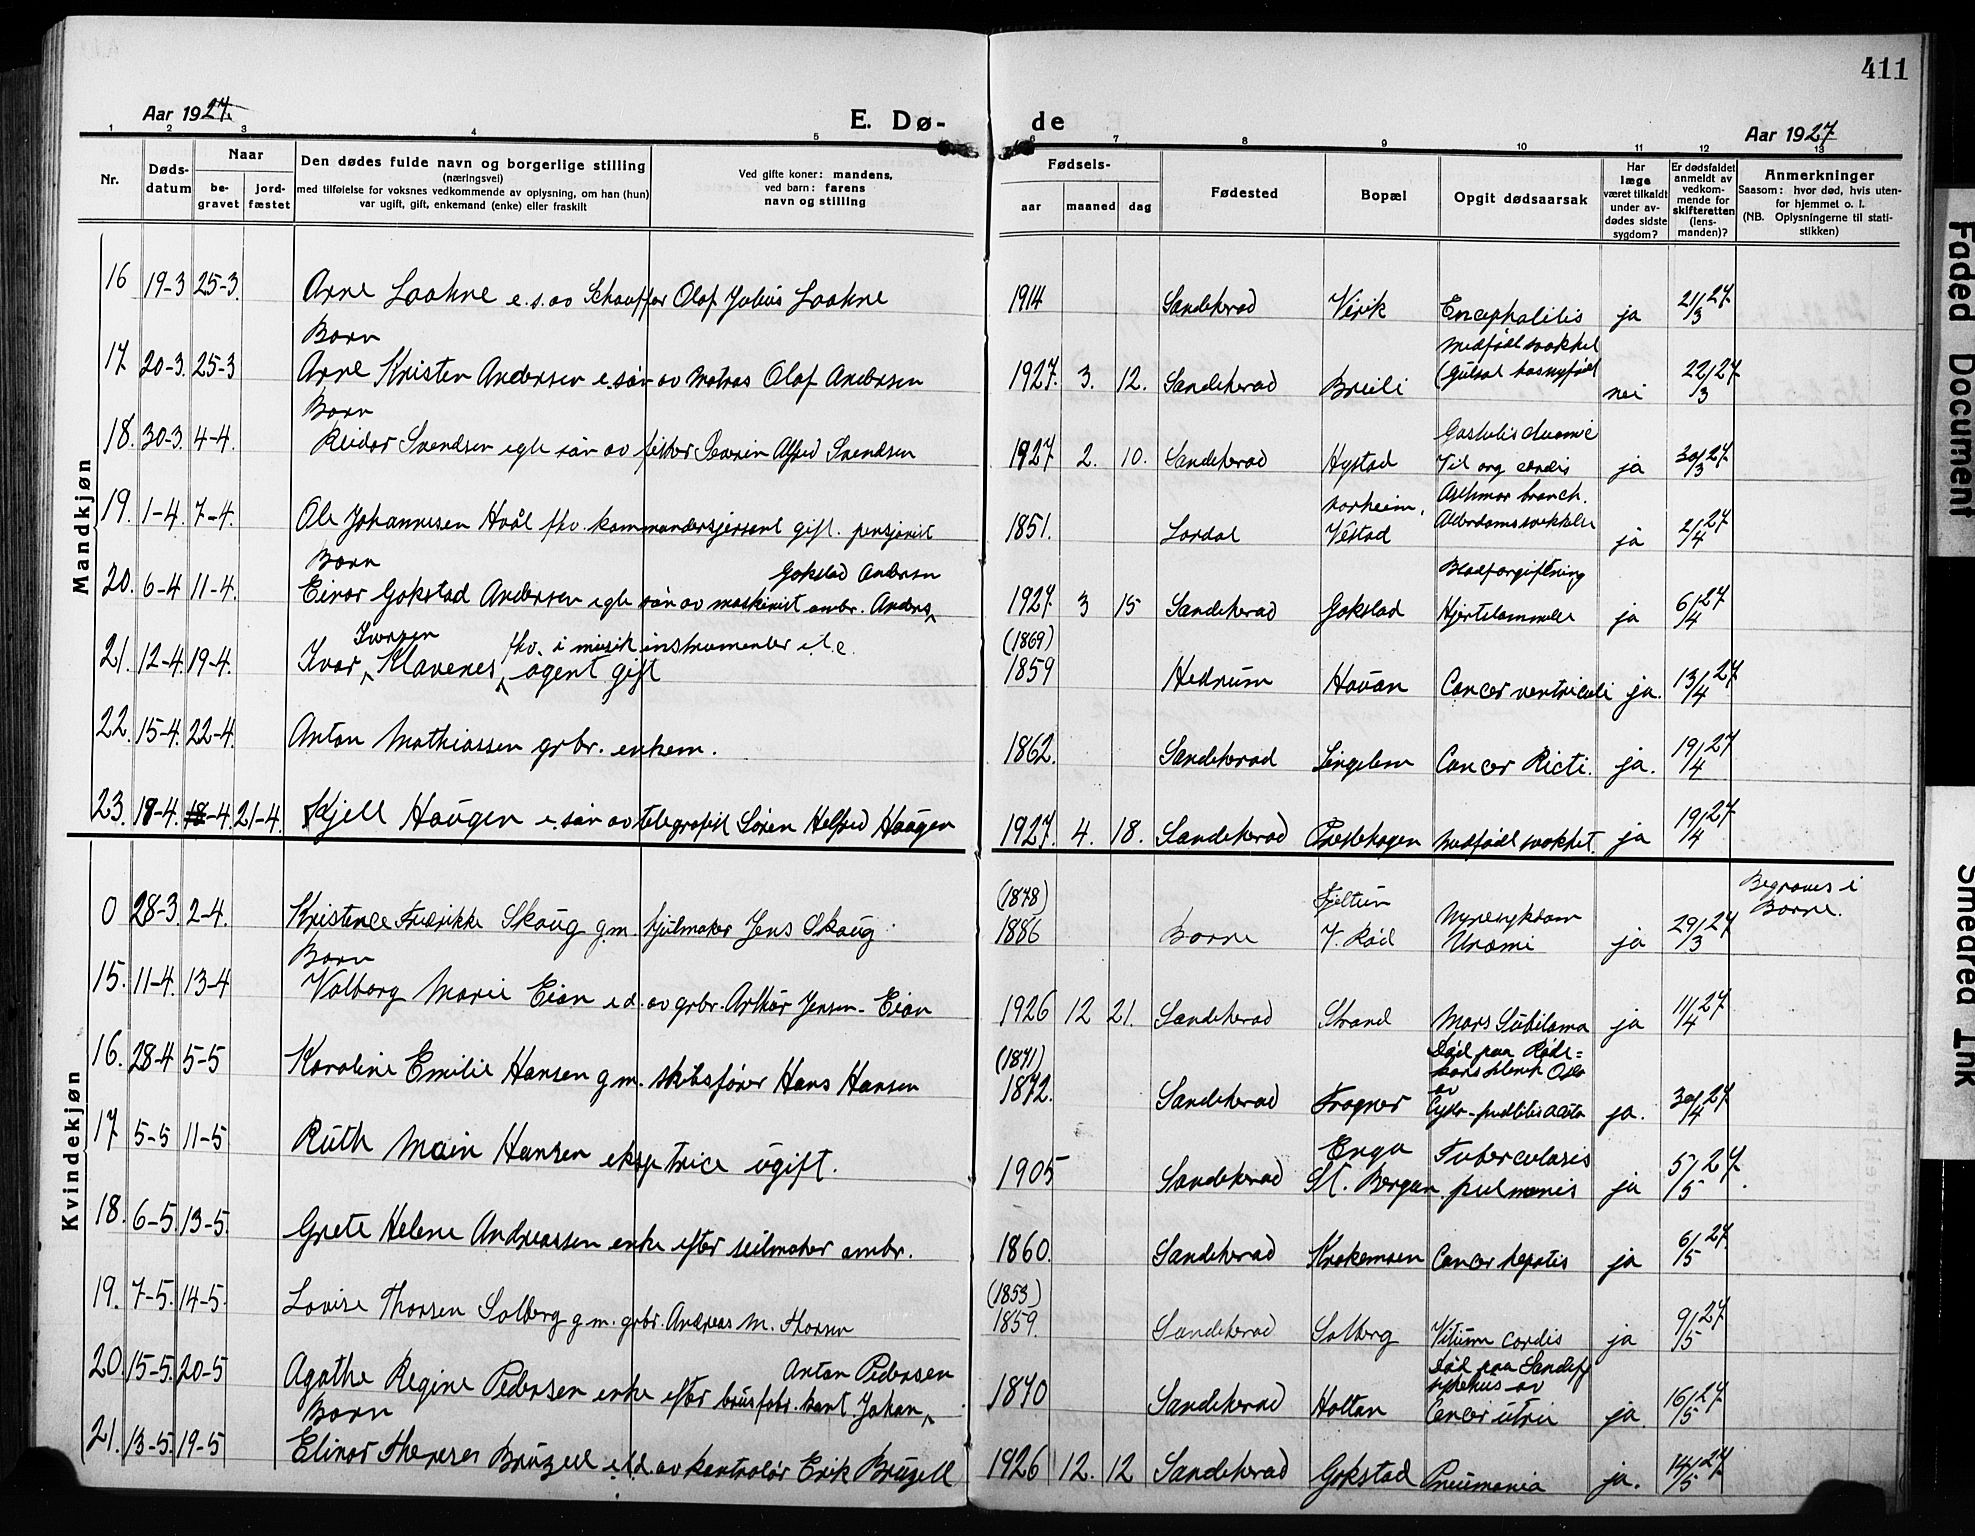 411
Aar 1927. E. Dø- de Aar 1927
1 2 3 4 5 6 7 8 9 10 11 12 13
Nr.
Døds-
datum
Naar
be-
gravet
jord-
fæstet
Den dødes fulde navn og borgerlige stilling
(næringsvei)
med tilføielse for voksnes vedkommende av oplysning, om han (hun)
var ugift, gift, enkemand (enke) eller fraskilt
Ved gifte koner: mandens,
ved barn: farens
navn og stilling
Fødsels-
aar maaned dag
Fødested
Bopæl
Opgit dødsaarsak
Har
læge
været tilkaldt
under av-
dødes sidste
sygdom?
Er dødsfaldet
anmeldt av
vedkom-
mende for
skifteretten
(lens-
manden)?
Anmerkninger
Saasom: hvor død, hvis uten-
for hjemmet o. l.
(NB. Oplysningerne til stati-
stikken)
Mandkjøn
16 19-3 25-3 Arne Laahne e. s. av Schauffør Olaf Julius Laahne 1914 Sandeherad Virik Encephalitis ja 21/3 27
Barn
medfødt svakhet
17 20-3. 25-3 Arne Kristen Andersen e. søn av Matros Olaf Andersen 1927. 3. 12. Sandeherad Breili nei 22/3 27
Barn
18. 30-3. 4-4. Reidar Svendsen egte søn av fisker Severin Alfred Svendsen 1927 2. 10. Sandeherad Hystad ja 30/3 27
Asthmar branch.
19. 1-4. 7-4. Ole Johannesen Hvål fhv. kommandersjersent gift. pensjonist 1851. Lardal Vestad Alderdomssvakkelse ja 2/4 27
Barn
Gokstad Andersen
Blodforgiftning
20. 6-4 11-4. Einar Gokstad Andersen egte søn av maskinist ombr. Anders 1927. 3 15 Sandeherad Gokstad Hjertelammelse ja 6/4 27
Iversen fhv. i musikinstrumenter (1869)
21. 12-4. 19-4. Ivar Klavenes agent gift 1859 Hedrum Hauan Cancer ventriculi ja. 13/4 27
22. 15-4. 22-4. Anton Mathiassen grbr. enkem. 1862. Sandeherad Lingelem Cancer Recti. ja. 19/4 27
23. 18-4. 18-4. 21-4. Kjell Haugen e. søn av telegrafist Søren Helfred Haugen 1927. 4. 18. Sandeherad Prestehagen medfødt svakhet. ja 19/4 27
Kvindekjøn
(1878)
Begraves i
Borre.
0 28-3. 2-4. Kristence Fredrikke Skaug g. m. hjulmaker Jens Skaug 1886 Borre Fjeltun Y. Rød Nyresykdom Uræmi ja 29/3 27
Barn
15. 11-4. 13-4 Valborg Marie Eian e d. av grbr. Arthur Jensen-Eian 1926 12 21. Sandeherad Strand Mors Subitama ja 11/4 27
(1871)
Død paa Røde=
kors klinik Oslo
av
16. 28-4 5-5 Karoline Emilie Hansen g m. skibsfører Hans Hansen 1872. Sandeherad Fragner ja. 30/4 27
17 5-5 11-5 Ruth Main Hansen ekspetrice ugift. 1905 Sandeherad Enga St. Bergan Tuberculosis pulmonis ja 5/5 27.
18. 6-5. 13-5. Grete Helene Andreassen enke efter seilmaker ambr. 1860. Sandeherad Krokemoen Cancer hepatis ja 6/5 27.
(1853)
19. 7-5. 14-5. Lovise Thorsen Solberg g m. grbr. Andreas M. Thorsen 1859. Sandeherad Solberg Vitium cordis ja 9/5 27
Anton Pedersen
Død paa Sandefj
sykehus av
20. 15-5. 20-5 Agathe Regine Pedersen enke efter brusfabrikant Johan 1870 Sandeherad Holtan Cancer uteri ja 16/5 27.
Barn
21. 13-5. 19-5 Elinor Therese Bruzell e d. av kontrolør Erik Bruzell 1926 12. 12 Sandeherad Gokstad Pneumonia ja. 14/5 27.
Faded Document
Smeared Ink